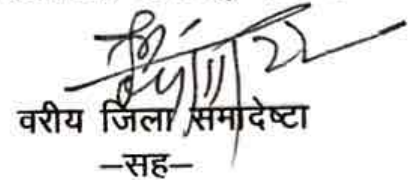 वरीय जिला समादेष्टा
–सह–